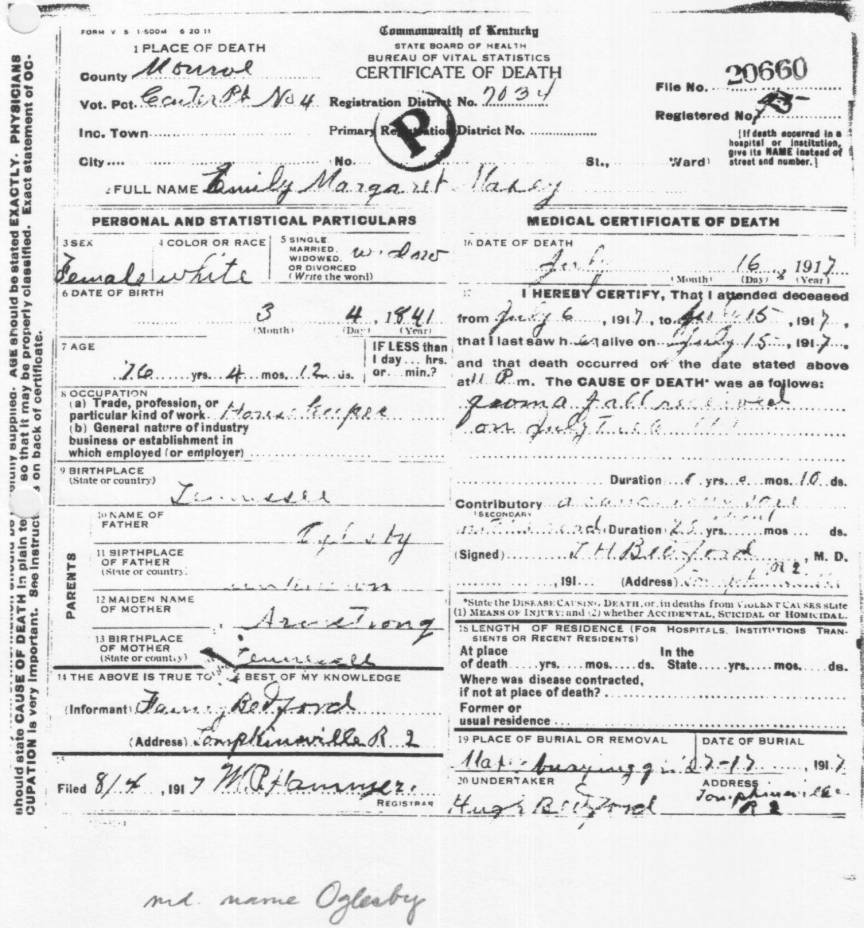 FORM V S 1-500M 6 20 11
Commonwealth of Kentucky
STATE BOARD OF HEALTH
BUREAU OF VITAL STATISTICS
CERTIFICATE OF DEATH
1 PLACE OF DEATH
County Monroe
Vot. Pct. Center Pt No 4 Registration District No. 7034
Inc. Town Primary Registration District No.
City No. St., Ward)
File No. 20660
Registered No.
[If death occurred in a hospital or institution, give its NAME instead of street and number.]
P
2 FULL NAME Emily Margaret Maxey
PERSONAL AND STATISTICAL PARTICULARS
3 SEX Female
4 COLOR OR RACE white
5 SINGLE, MARRIED, WIDOWED, OR DIVORCED (Write the word) widow
6 DATE OF BIRTH
3 4, 1841
(Month) (Day) (Year)
7 AGE
76 yrs. 4 mos. 12 ds.
IF LESS than 1 day... hrs. or... min.?
8 OCCUPATION
(a) Trade, profession, or particular kind of work House keeper
(b) General nature of industry business or establishment in which employed (or employer)
9 BIRTHPLACE
(State or country)
Tennessee
PARENTS
10 NAME OF FATHER Oglesby
11 BIRTHPLACE OF FATHER (State or country) unknown
12 MAIDEN NAME OF MOTHER Armstrong
13 BIRTHPLACE OF MOTHER (State or country) Tennessee
14 THE ABOVE IS TRUE TO BEST OF MY KNOWLEDGE
(Informant) Bedford
(Address) Tompkinsville R 2
Filed 8/4, 1917
REGISTRAR
MEDICAL CERTIFICATE OF DEATH
16 DATE OF DEATH
July 16, 1917
(Month) (Day) (Year)
17 I HEREBY CERTIFY, That I attended deceased
from July 6, 1917, to July 15, 1917,
that I last saw her alive on July 15, 1917.
and that death occurred on the date stated above
at 11 P m. The CAUSE OF DEATH* was as follows:
from a fall received
on July
Duration yrs. mos. 10 ds.
Contributory
SECONDARY
Duration 25 yrs. mos ds.
(Signed) J H Bedford, M. D.
, 191 (Address) R 2
*State the DISEASE CAUSING DEATH, or, in deaths from VIOLENT CAUSES state (1) MEANS OF INJURY; and (2) whether ACCIDENTAL, SUICIDAL or HOMICIDAL.
18 LENGTH OF RESIDENCE (FOR HOSPITALS, INSTITUTIONS, TRANSIENTS OR RECENT RESIDENTS)
At place of death yrs. mos. ds. In the State yrs. mos. ds.
Where was disease contracted, if not at place of death?
Former or usual residence
19 PLACE OF BURIAL OR REMOVAL
DATE OF BURIAL
1917
20 UNDERTAKER
Hugh Bedford
ADDRESS
Tompkinsville
R 2
AGE should be stated EXACTLY. PHYSICIANS
should state CAUSE OF DEATH in plain
so that it may be properly classified. Exact statement of OC-
CUPATION is very important. See
on back of certificate.
md. name Oglesby